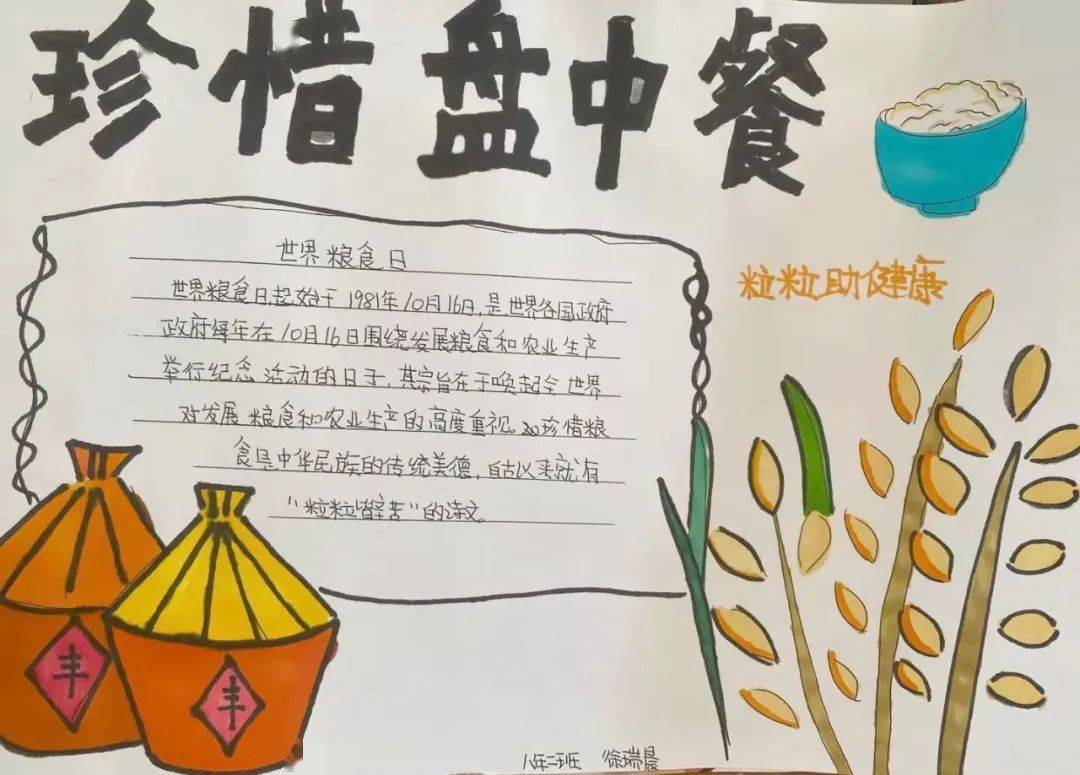 珍惜盘中餐
世界粮食日
粒粒助健康
世界粮食日起始于1981年10月16日,是世界各国政府
政府每年在10月16日围绕发展粮食和农业生产
举行纪念活动的日子,其宗旨在于唤起全世界
对发展粮食和农业生产的高度重视。珍惜粮
食是中华民族的传统美德,自古以来就有
“粒粒皆辛苦”的诗文。
丰
丰
八年二班 徐瑞晨